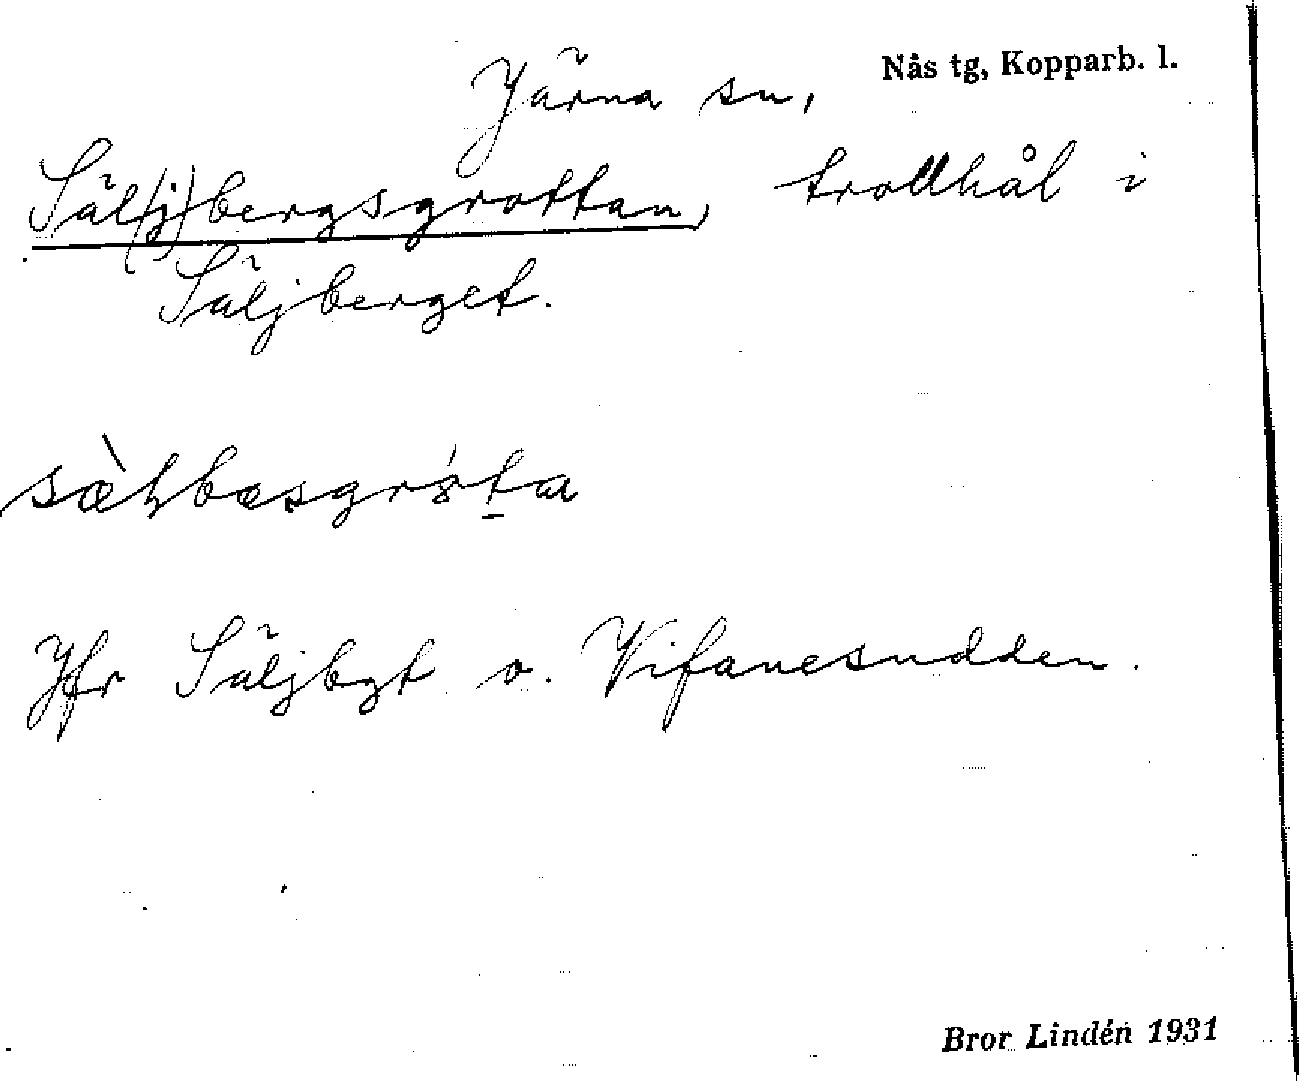 Nås tg, Kopparb. l.
Järna sn,
Säl(j)bergsgrottan, trollhål i
Säljberget.
Jfr Säljbgt o. Vifanesudden.
Bror Lindén 1931